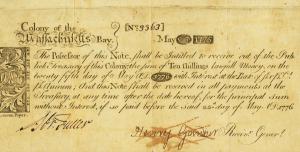 Colony of the [No 9363]
Massachusetts Bay, May 1776
The Possessor of this Note, shall be Intitled to receive out of the Pub-
lick Treasury of this Colony, the sum of Ten Shillings lawful Money, on the
twenty fifth day of May, A.D. 1778 with Interest at the Rate of
and this Note shall be received in all payments at the
Treasury at any time after the date hereof, for the principal Sum
without Interest, if so paid before the said day of May, 1776
Fuller
Henry Gardner Receiv. Genel.